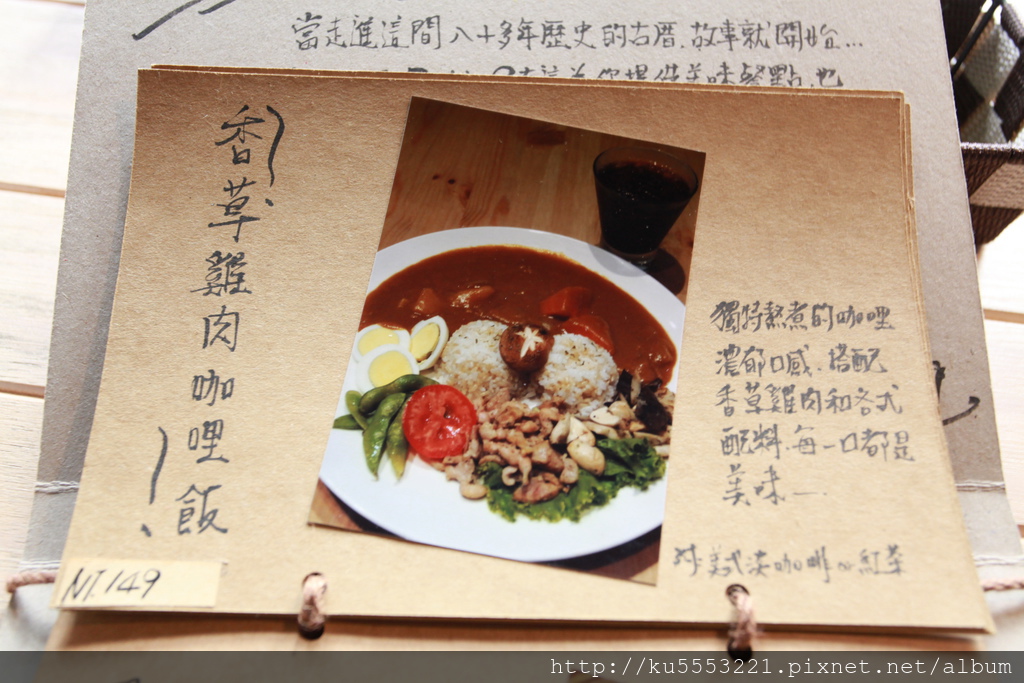 當走進這間八十多年歷史的古厝.故事就開始...
香草雞肉咖哩飯
獨特熬煮的咖哩
濃郁口感.搭配
香草雞肉和各式
配料.每一口都是
美味—.
NT.149
附美式淡咖啡or紅茶
http://ku5553221.pixnet.net/album